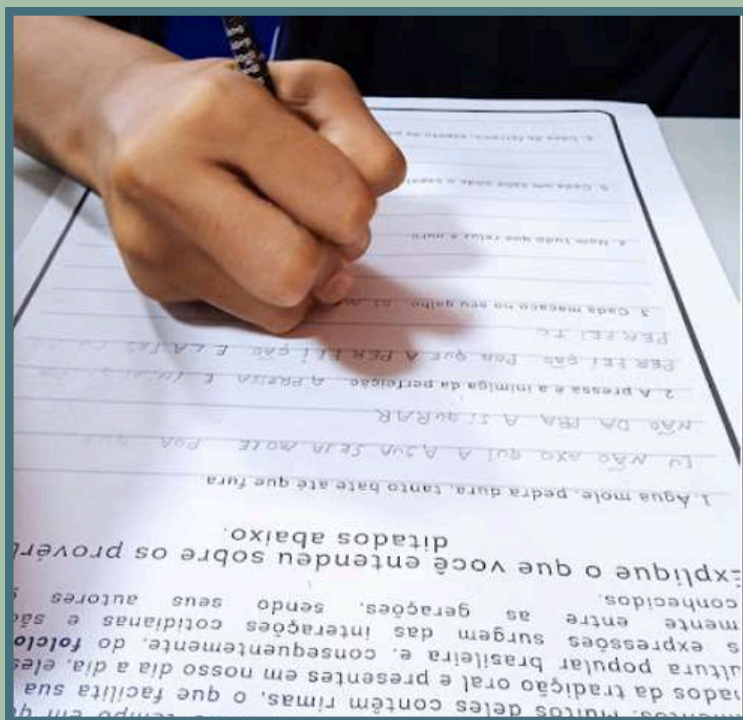 tempo em
Muitos deles contêm rimas, o que facilita sua
da tradição oral e presentes em nosso dia a dia, eles
ultura popular brasileira e, consequentemente, do folclo
s expressões surgem das interações cotidianas e são
mente entre as gerações, sendo seus autores
conhecidos.
Explique o que você entendeu sobre os provérb
ditados abaixo.
1. Água mole, pedra dura, tanto bate até que fura.
EU NÃO AXO QUI A AGUA SEJA MOLE POR QUE
NÃO DA PRA A SIGURAR
2. A pressa é a inimiga da perfeição. A PRESSA E
PERFEIÇÃO POR QUE A PERFEIÇÃO E LA
PERFEITO
3. Cada macaco no seu galho.
4. Nem tudo que reluz é ouro.
5. Cada um sabe onde o
6. Casa de ferreiro, espeto de